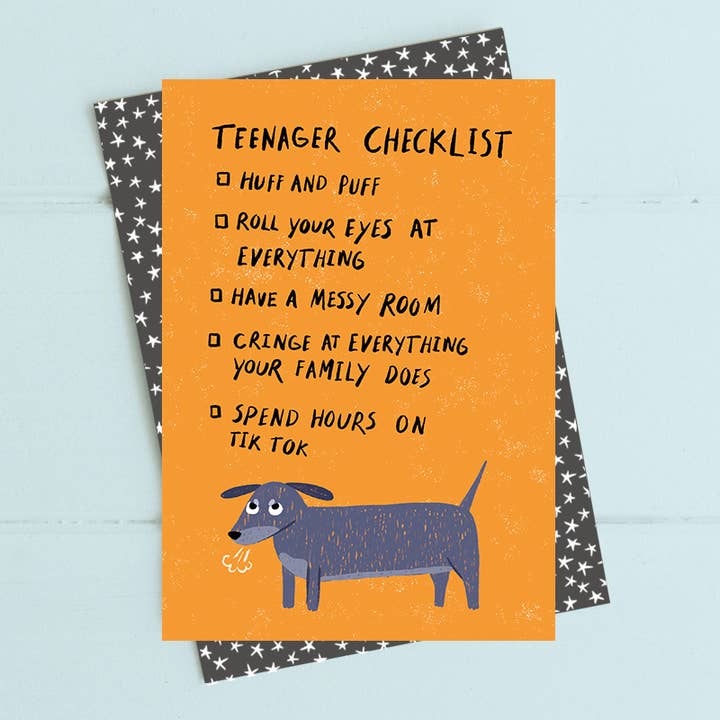 TEENAGER CHECKLIST
HUFF AND PUFF
ROLL YOUR EYES AT
EVERYTHING
HAVE A MESSY ROOM
CRINGE AT EVERYTHING
YOUR FAMILY DOES
SPEND HOURS ON
TIK TOK